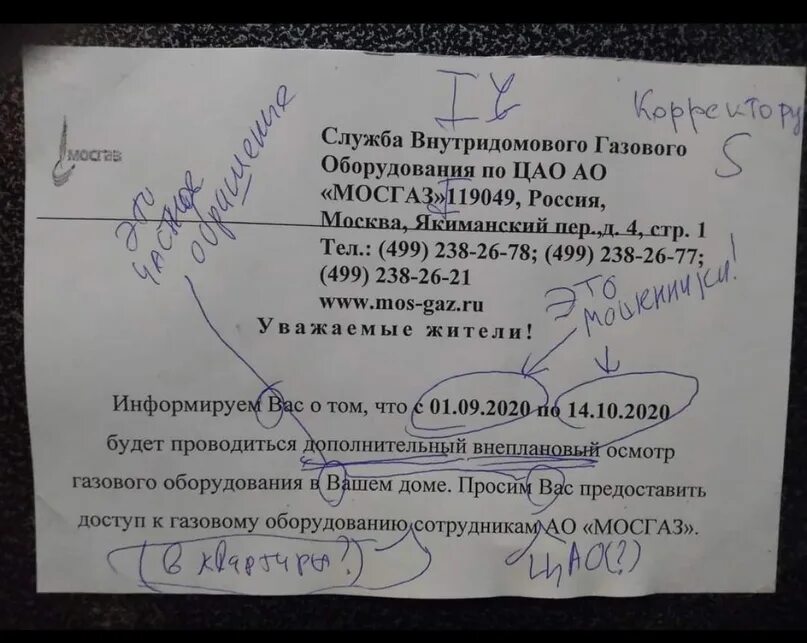 Корректору
5
мосгаз
Служба Внутридомового Газового
Оборудования по ЦАО АО
«МОСГАЗ»119049, Россия,
Москва, Якиманский пер.,д. 4, стр. 1
Тел.: (499) 238-26-78; (499) 238-26-77;
(499) 238-26-21
www.mos-gaz.ru
Это
частное
обращение
Это
мошенники!
Уважаемые жители!
Информируем Вас о том, что с 01.09.2020 по 14.10.2020
будет проводиться дополнительный внеплановый осмотр
газового оборудования в Вашем доме. Просим Вас предоставить
доступ к газовому оборудованию сотрудникам АО «МОСГАЗ».
(в квартиры?)
ЦАО(?)